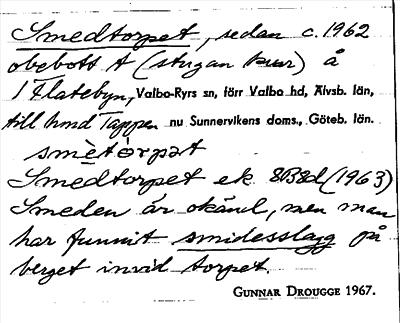 Smedtorpet, sedan c. 1962
obebott t (stugan kvar) å
1 Flatebyn, Valbo-Ryrs sn, förr Valbo hd, Älvsb. län,
till hmd Tappen nu Sunnervikens doms., Göteb. län.
smètórpat
Smedtorpet ek 8B8d (1963)
Smeden är okänd, men man
har funnit smidesslagg på
berget invid torpet.
GUNNAR DROUGGE 1967.